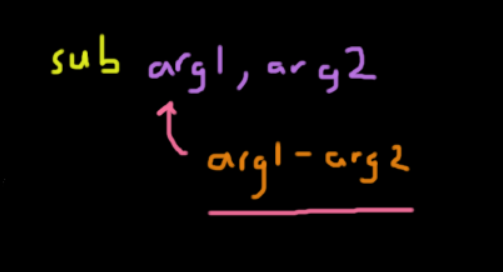 sub arg1, arg2
arg1 - arg2